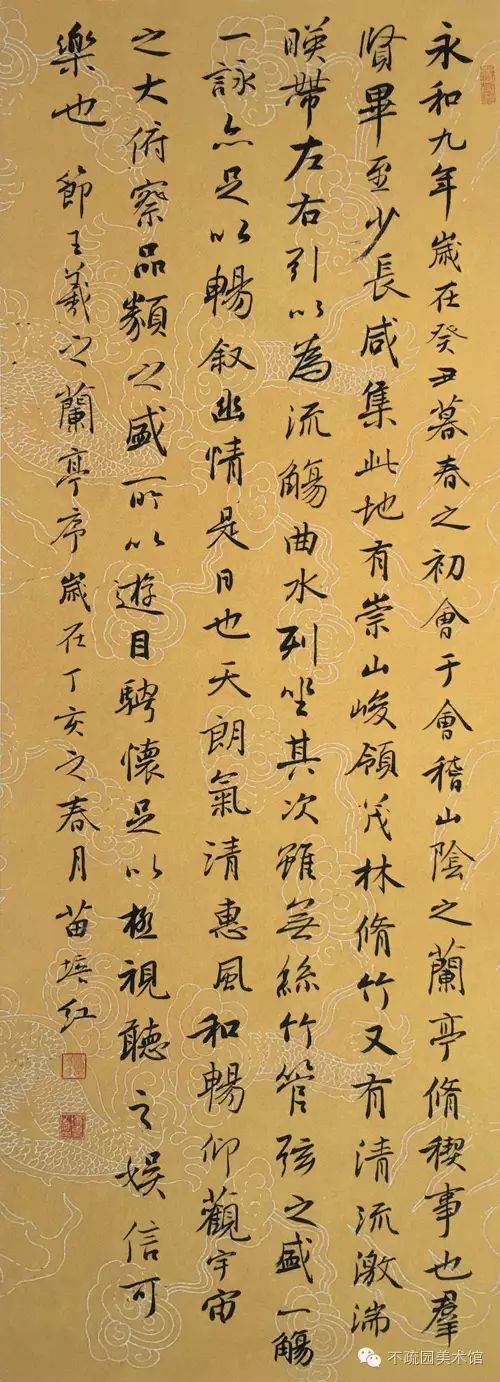 永和九年歲在癸丑暮春之初會于會稽山陰之蘭亭脩稧事也羣
賢畢至少長咸集此地有崇山峻領茂林脩竹又有清流激湍
暎帶左右引以為流觴曲水列坐其次雖無絲竹管弦之盛一觴
一詠亦足以暢叙幽情是日也天朗氣清惠風和暢仰觀宇宙
之大俯察品類之盛所以遊目騁懷足以極視聽之娛信可
樂也 節王羲之蘭亭序歲在丁亥之春月苗培红
不疏园美术馆